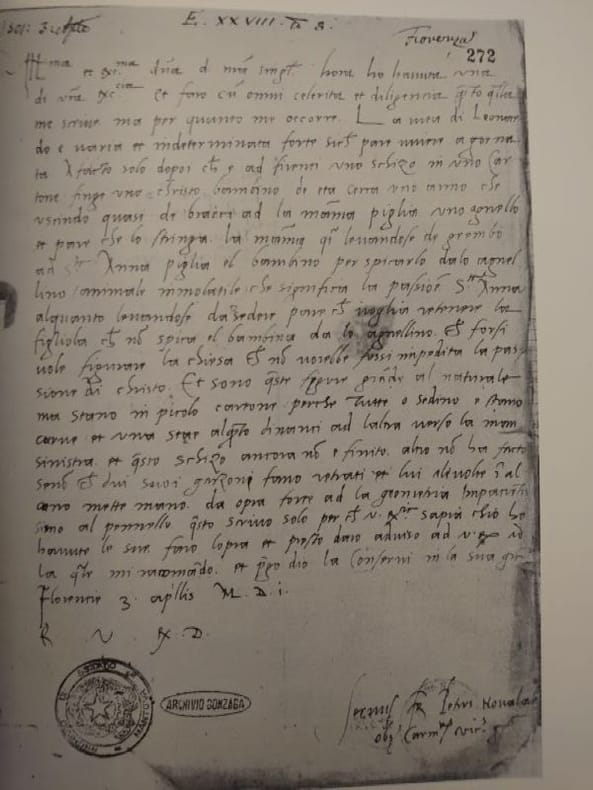 E. XXVIII. 3
Fiorenza
272
Ill.ma et exc.ma d.na d. mia sing.ma hora ho havuta una
di v.ra exc.tia et farò cu.m omni celerità et diligencia q.to q.lla
me scrive ma per quanto me occorre. La vita di Leonar
do e varia et indeterminata forte sì ch. pare vivere a gorna
ta. A facto solo dopoi ch. e ad firenci uno schizo in uno Car
tone finge uno christo bambino de età cerca uno anno che
uscindo quasi de bracci ad la mamma piglia uno agnello
et pare che lo stringa. La mamma q.si levandose de grembo
ad S.ta Anna piglia el bambino per spicarlo dalo agnel
lino animale immolatile che significa la passione S.ta Anna
alquanto levandose da sedere pare ch. voglia retenere la
figliola ch. no. spica el bambino da lo agnellino. ch. forsi
vole figurare la chiesa ch. no. vorebbe fussi impedita la pas
sione di christo. Et sono q.ste figure grande al naturale
ma stano in picolo cartone perche tutte o sedeno o stano
curve et una stae alq.to dinanci ad laltra verso la man
sinistra. et q.sto schizo ancora no. e finito. altro no. ha facto
seno. ch. dui suoi garzoni fano retrati et lui ale volte i. al
cuno mette mano. da opra forte ad la geometria Impacientis
simo al pennello. q.sto scrivo solo per ch. v. ex.tia sapia chio ho
havute le sue. farò lopra et presto darò adviso ad v. ex.
la q.le mi racomando. et prego dio la Conservi in la sua gra
Florencie 3 aprilis M. D. i.
E V Ex D.
ARCHIVIO GONZAGA
ARCHIVIO DI STATO
MANTOVA
Servus Fr. Petrus
Carm.